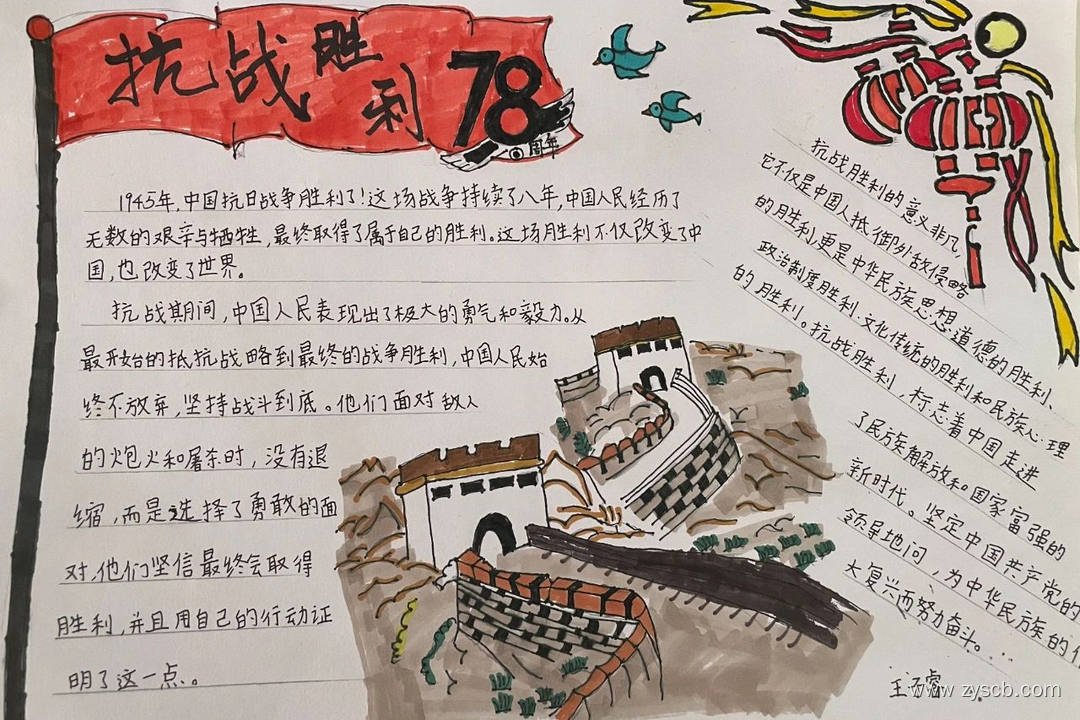 抗战胜利
78
周年
1945年,中国抗日战争胜利了!这场战争持续了八年,中国人民经历了
无数的艰辛与牺牲,最终取得了属于自己的胜利。这场胜利不仅改变了中
国,也改变了世界。
抗战期间,中国人民表现出了极大的勇气和毅力。从
最开始的抵抗战略到最终的战争胜利,中国人民始
终不放弃,坚持战斗到底。他们面对敌人
的炮火和屠杀时,没有退
缩,而是选择了勇敢的面
对,他们坚信最终会取得
胜利,并且用自己的行动证
明了这一点。
抗战胜利的意义非凡,
它不仅是中国人抵御外敌侵略
的胜利,更是中华民族思想道德的胜利、
政治制度胜利.文化传统的胜利和民族心理
的胜利。抗战胜利,标志着中国走进
了民族解放和国家富强的
新时代。坚定中国共产党的
领导地问,为中华民族的伟
大复兴而努力奋斗。...
www.zyscb.com